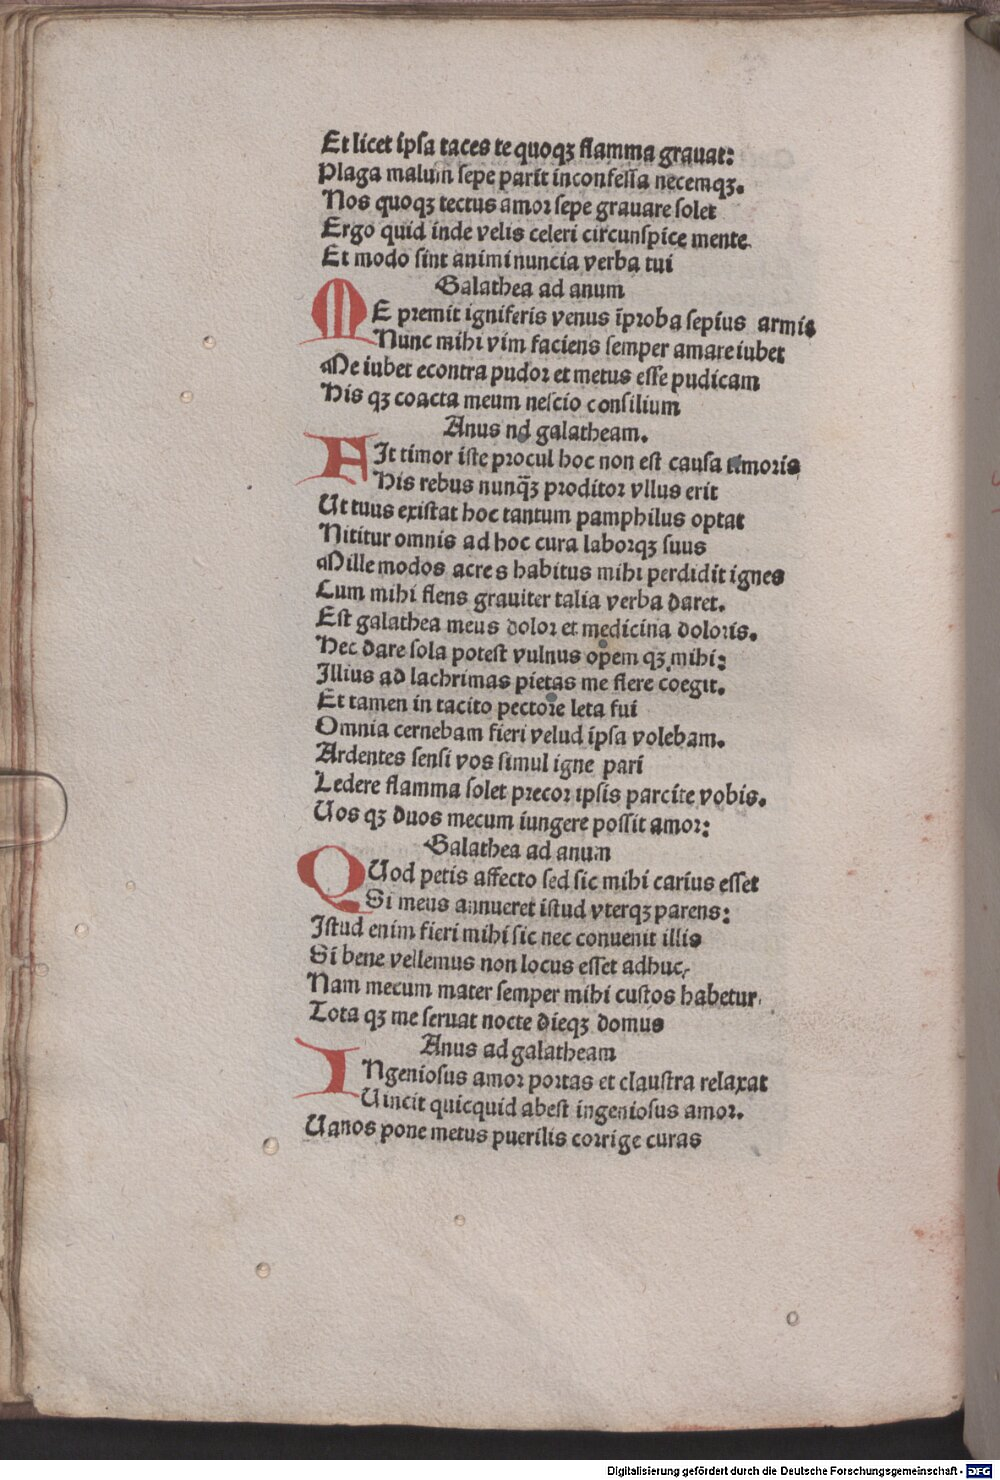 Et licet ipſa taces te quoqꝫ flamma grauat:
Plaga malum ſepe parit inconfeſſa necemqꝫ.
Nos quoqꝫ tectus amoꝛ ſepe grauare ſolet
Ergo quid inde velis celeri circunſpice mente.
Et modo ſint animi nuncia verba tui
Galathea ad anum
ME pꝛemit igniferis venus īpꝛoba ſepius armis
Nunc mihi vim faciens ſemper amare iubet
Me iubet econtra pudoꝛ et metus eſſe pudicam
His qꝫ coacta meum neſcio conſilium
Anus nd galatheam.
FIt timoꝛ iſte pꝛocul hoc non eſt cauſa timoꝛis
His rebus nunq̄ꝫ pꝛoditoꝛ vllus erit
Ut tuus exiſtat hoc tantum pamphilus optat
Nititur omnis ad hoc cura laboꝛqꝫ ſuus
Mille modos acres habitus mihi perdidit ignes
Cum mihi flens grauiter talia verba daret.
Eſt galathea meus doloꝛ et medicina doloꝛis.
Hec dare ſola poteſt vulnus opem qꝫ mihi:
Illius ad lachrimas pietas me flere coegit.
Et tamen in tacito pectoꝛe leta fui
Omnia cernebam fieri velud ipſa volebam.
Ardentes ſenſi vos ſimul igne pari
Ledere flamma ſolet pꝛecoꝛ ipſis parcite vobis.
Uos qꝫ duos mecum iungere poſſit amoꝛ:
Galathea ad anum
QUod petis affecto ſed ſic mihi carius eſſet
Si meus annueret iſtud vterqꝫ parens:
Iſtud enim fieri mihi ſic nec conuenit illis
Si bene vellemus non locus eſſet adhuc,
Nam mecum mater ſemper mihi cuſtos habetur.
Tota qꝫ me ſeruat nocte dieqꝫ domus
Anus ad galatheam
INgenioſus amoꝛ poꝛtas et clauſtra relaxat
Uincit quicquid abeſt ingenioſus amoꝛ.
Uanos pone metus puerilis coꝛrige curas
Digitalisierung gefördert durch die Deutsche Forschungsgemeinschaft - DFG